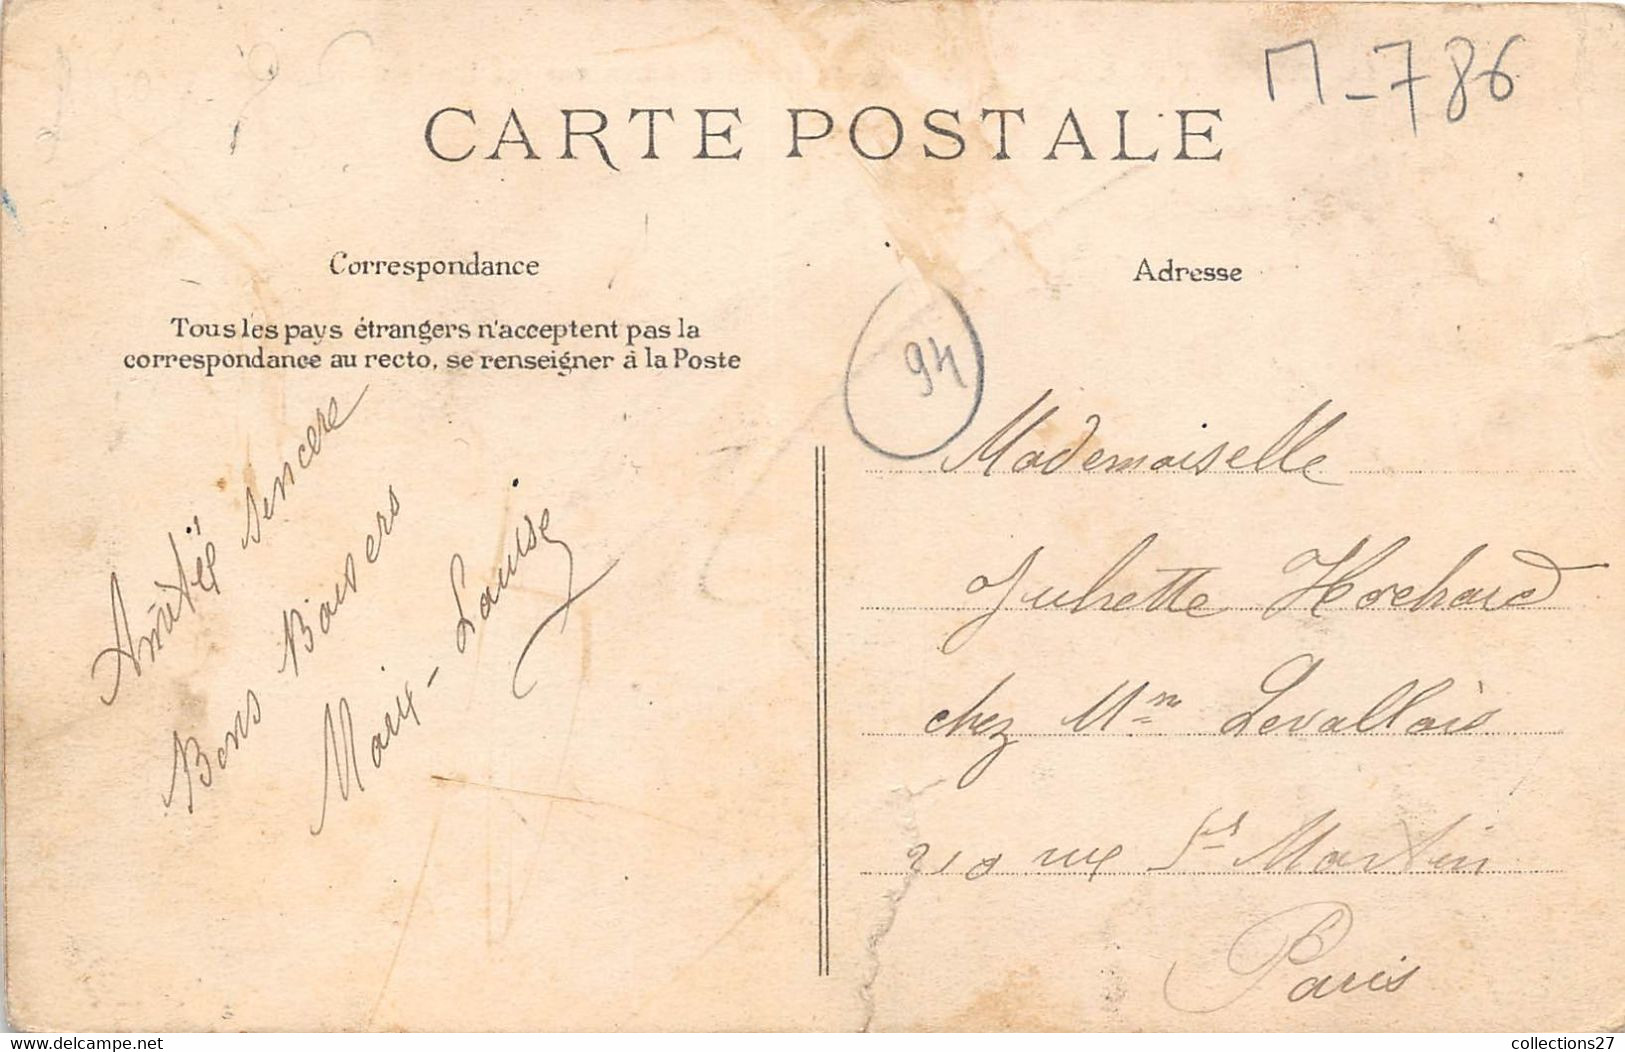 M-786
CARTE POSTALE
Correspondance
Tous les pays étrangers n'acceptent pas la
correspondance au recto, se renseigner à la Poste
Amitié sincere
Bons Baisers
Marie-Louise
Adresse
94
Mademoiselle
Juliette
chez Mm Levallois
210 rue St Martin
Paris
collections27